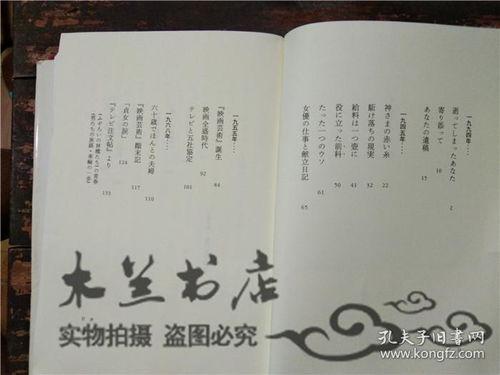 一九九四年‥‥
逝ってしまったあなた
2
寄り添って
10
あなたの遺稿
15
一九四五年‥‥
神さまの赤い糸
22
駆け落ちの現実
32
給料は一つ壺に
41
役に立った前科
50
たった一つのウソ
61
女優の仕事と献立日記
65
一九五五年‥‥
『映画芸術』誕生
84
映画全盛時代
92
テレビと五社協定
101
六十歳でほんとの夫婦
110
一九六八年‥‥
『映画芸術』顛末記
117
『貞女の涙』
124
『テレビ注文帖』より
133
木兰书店
实物拍摄 盗图必究
孔夫子旧书网
www.kongfz.com